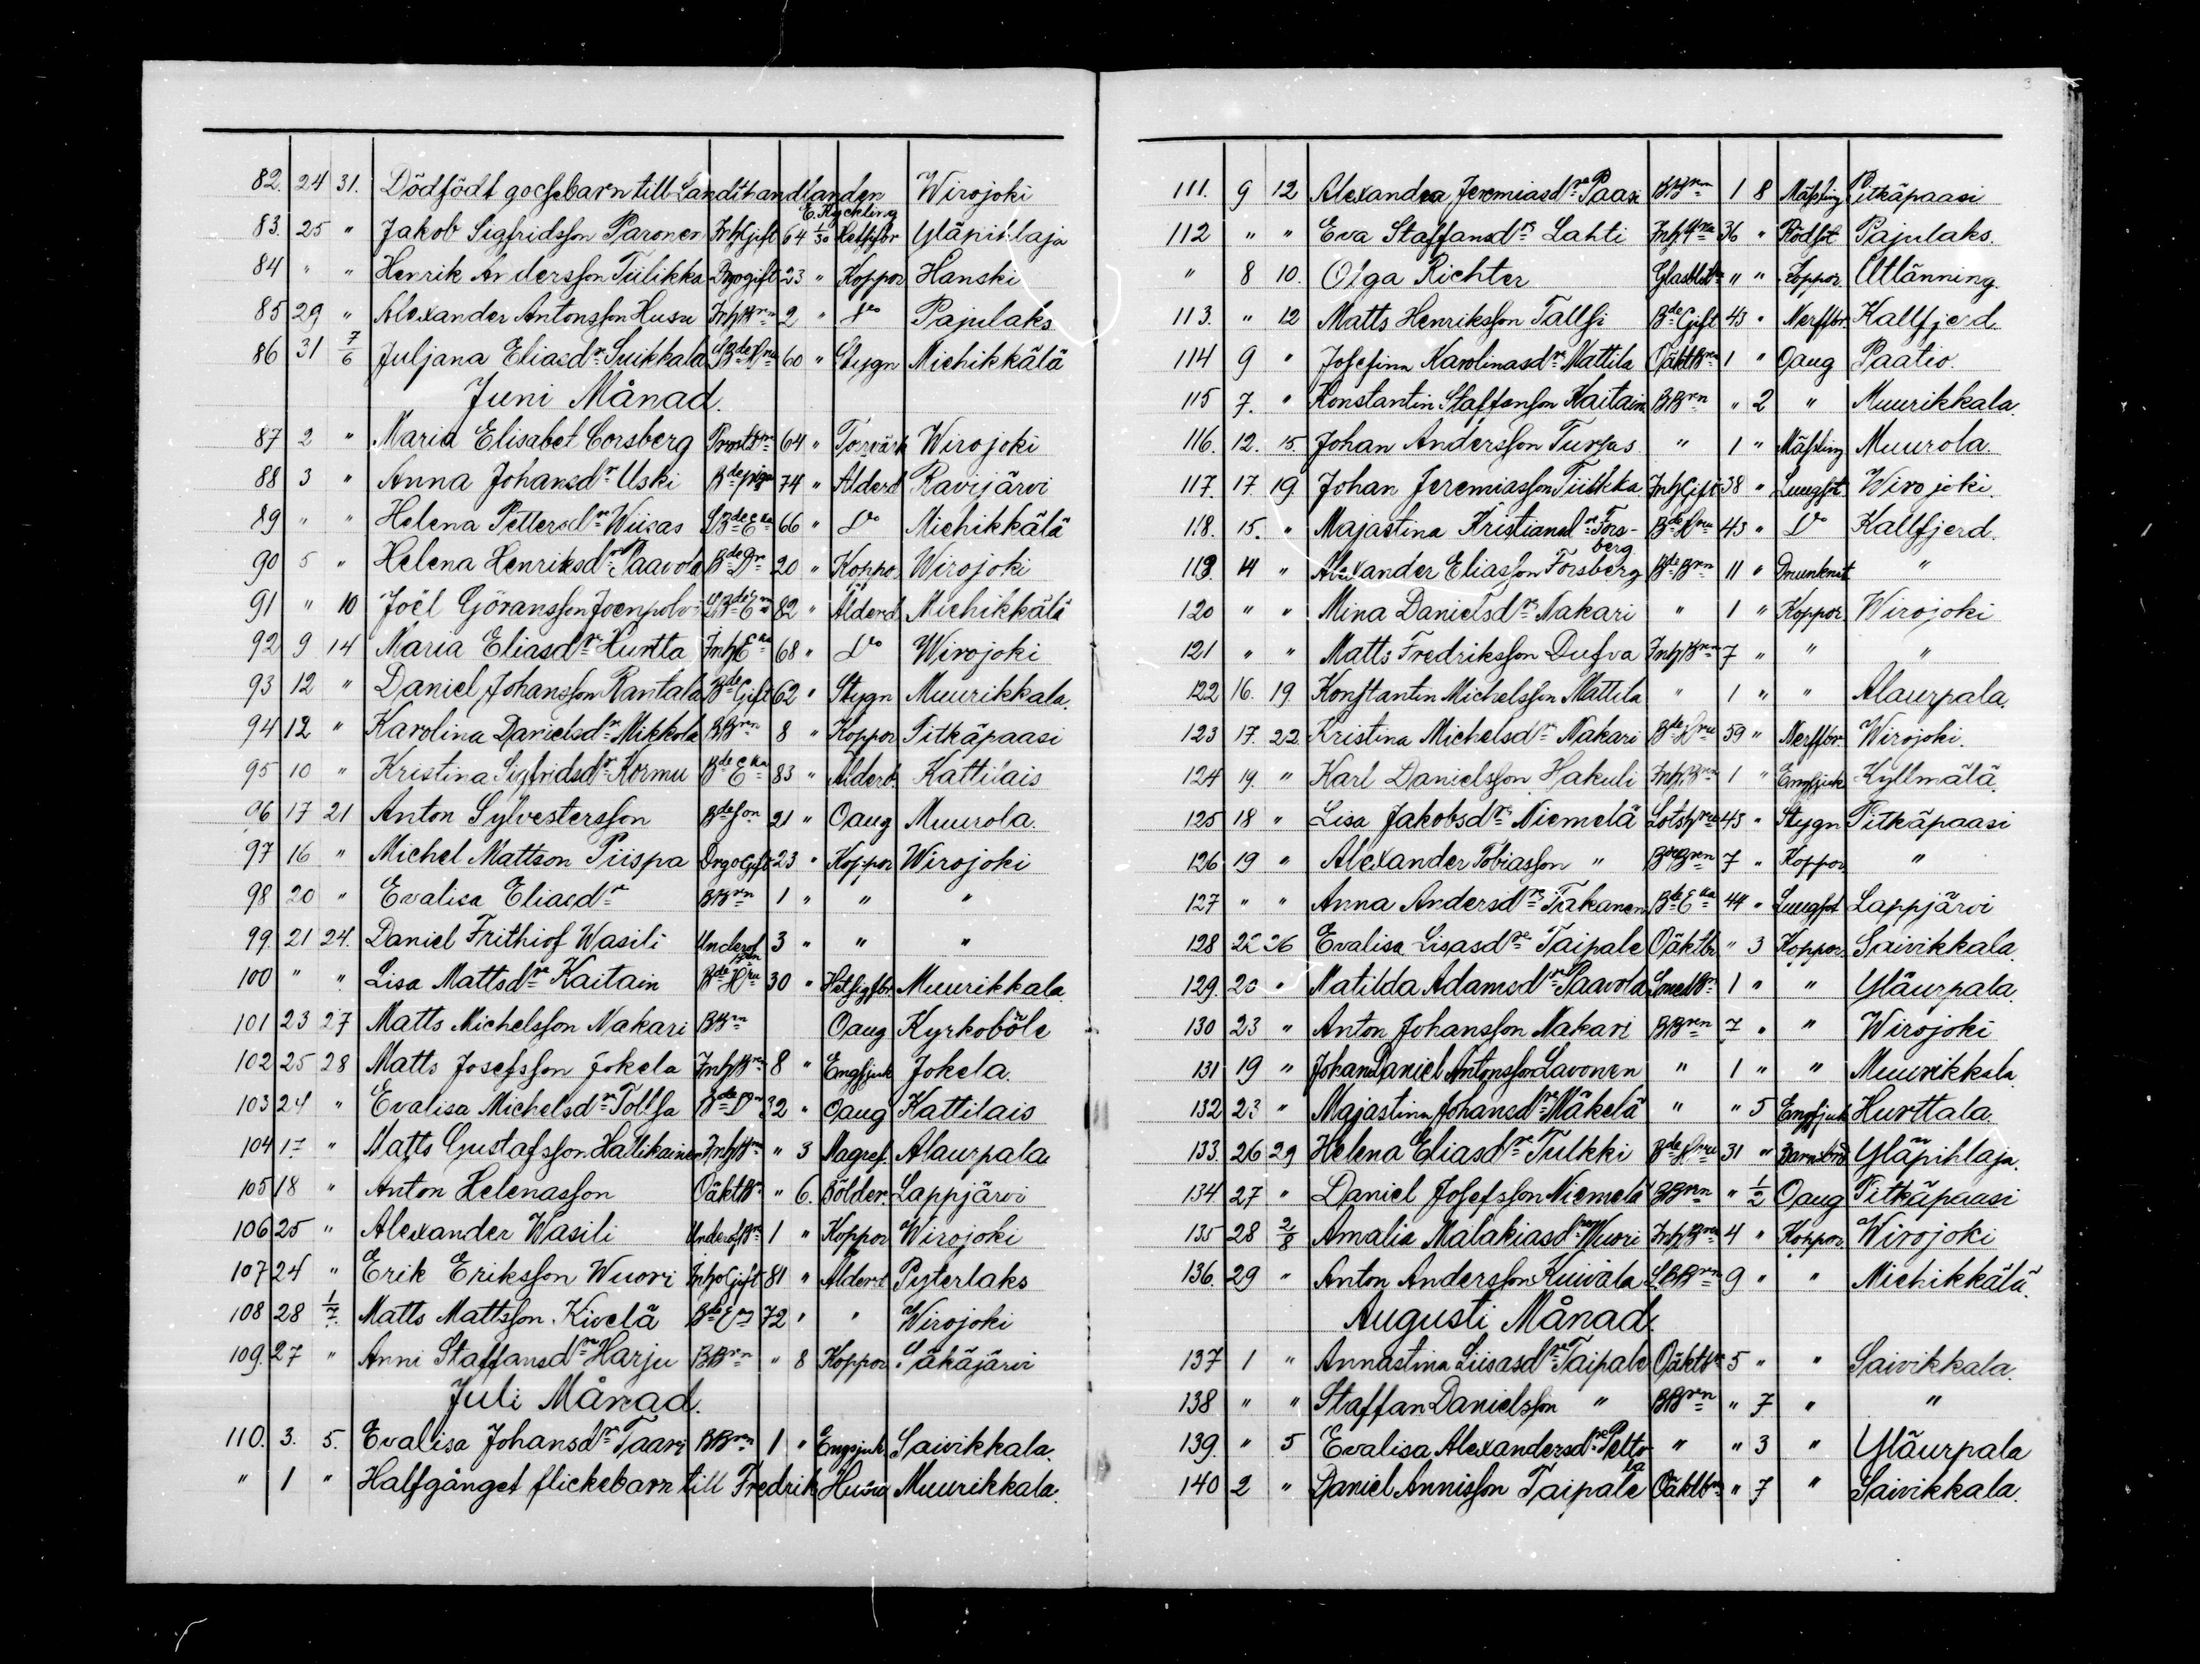 82. 24 31. Dödfödt gossebarn till Landthandlanden E. Kyckling Wirojoki
83. 25 " Jakob Sigfridsson Paronen InhGift 64 1/30 Hetsfbr Yläpihlaja
84 " " Henrik Andersson Tiilikka Drgogift 23 " Koppor Hanski
85 29 " Alexander Antonsson Husu InhBrn 2 " Do Papulaks
86 31 7/6 Juljana Eliasdr Suikkala SBdeHru 60 " Stygn Michikkälä
Juni Månad.
87 2 " Maria Elisabet Corsberg 64 " Torrvärk Wirojoki
88 3 " Anna Johansdr Uski Bdepiga 74 " Alderd Ravijärvi
89 " " Helena Pettersdr Wiisas SBdeEka 66 " Do Michikkälä
90 5 " Helena Henriksdr Paavola BdeDr 20 " Koppo Wirojoki
91 " 10 Joël Göransson Joenpolvi SBdeEm 82 " Ålderd Michikkälä
92 9 14 Maria Eliasdr Hurtta InhEka 68 " Do Wirojoki
93 12 " Daniel Johansson Rantala BdeGift 62 " Stygn Muurikkala.
94 12 " Karolina Danielsdr Mikkola BBrn 8 " Koppor Pitkäpaasi
95 10 " Kristina Sigfridsdr Kormu BdeEka 83 " Alderd. Kattilais
96 17 21 Anton Sylvestersson Bdeson 21 " Oaug Muurola.
97 16 " Michel Mattson Piispa DrgoGift 23 " Koppor Wirojoki
98 20 " Evalisa Eliasdr BBrn 1 " " "
99. 21 24. Daniel Frithiof Wasili Underof Brn 3 " " "
100 " " Lisa Mattsdr Kaitain BdeHru 30 " Hetsigfbr Muurikkala
101 23 27 Matts Michelsson Nakari BBrn Oaug Kyrkoböle
102 25 28 Matts Josefsson Jokela InhBrn 8 " Engsjuk Jokela.
103 24 " Evalisa Michelsdr Tollsa BdeDr 32 " Oaug Kattilais
104 17 " Matts Gustafsson Hallikainen InhBrn " 3 Magref. Alaurpala
105 18 " Anton Helenasson OäktBr " 6. Bölder. Lappjärvi
106 25 " Alexander Wasili UnderofBr 1 " Koppor Wirojoki
107 24 " Erik Eriksson Wuori InhoGift 81 " Alderd Pyterlaks
108 28 1/7 Matts Mattsson Kivelä BdeEm 72 " " Wirojoki
109. 27 " Anni Staffansdr Harju BBrn " 8 Koppor Säkäjärvi
Juli Månad.
110. 3. 5. Evalisa Johansdr Taari BBrn 1 " Engsjuk. Saivikkala.
" 1 " Halfgånget flickebarn till Fredrik Husu Muurikkala.
111. 9 12 Alexandra Jeremiasdr Paasi BBrn 1 8 Mässling Pitkäpaasi
112 " " Eva Staffansdr Lahti InhHru 36 " Rödsot Pajulaks.
" 8 10. Olga Richter " " Koppor Utlänning.
113. " 12 Matts Henriksson Tallsi BdeGift 43 " Nerffbr. Kallfjerd
114 9 " Josefina Karolinasdr Mattila OäktBrn 1 " Oaug Paatio.
115 7. " Konstantin Staffanson Kaitain BBrn " 2 " Muurikkala.
116. 12. 15. Johan Andersson Turjas " 1 " Mässling Muurola.
117. 17 19. Johan Jeremiasson Tiilikka InhGift 38 " Lungsot Wirojoki.
118. 15. " Majastina Kristiansdr Forsberg BdeHru 43 " Do Kallfjerd.
119. 14 " Alexander Eliasson Forsberg BdeBrn 11 " Drunknat "
120 " " Mina Danielsdr Nakari " 1 " Koppor Wirojoki
121 " " Matts Fredriksson Dufva InhBrn 7 " " "
122 16. 19. Konstantin Michelsson Mattila " 1 " " Alaurpala.
123 17. 22. Kristina Michelsdr Nakari BdeHru 59 " Nerffbr. Wirojoki.
124 19. " Karl Danielsson Hakuli InhBrn 1 " Engsjuk Kyllmälä.
125 18 " Lisa Jakobsdr Niemelä LotsHru 43 " Stygn Pitkäpaasi
126. 19 " Alexander Tobiasson " BdeBrn 7 " Koppor "
127 " " Anna Andersdr Takanen BdeEka 44 " Lungsot Lappjärvi
128 22 26 Evalisa Lisasdr Taipale OäktBr " 3 Koppor. Saivikkala.
129. 20 " Matilda Adamsdr Paavola 1 " " Yläurpala.
130 23 " Anton Johansson Nakari BBrn 7 " " Wirojoki
131 19 " Johan Daniel Antonsson Lavonen " 1 " " Muurikkala
132 23 " Majastina Johansdr Mäkelä " " 5 Engsjuk Hurttala.
133. 26 29 Helena Eliasdr Tulkki BdeHru 31 " Barnsbrd Yläpihlaja.
134. 27 " Daniel Josefsson Niemelä BBrn " 1/2 Oaug Pitkäpaasi
135 28 2/8 Amalia Malakiasdr Wuori InhBrn 4 " Koppor. Wirojoki
136. 29 " Anton Andersson Kuivala SBBrn 9 " " Michikkälä.
Augusti Månad.
137 1 " Annastina Liisasdr Taipale OäktBr 5 " " Saivikkala.
138 " " Staffan Danielsson " BBrn " 7 " "
139. " 5 Evalisa Alexandersdr Peltola " " 3 " Yläurpala
140 2 " Daniel Annisson Taipale OäktBrn " 7 " Saivikkala.